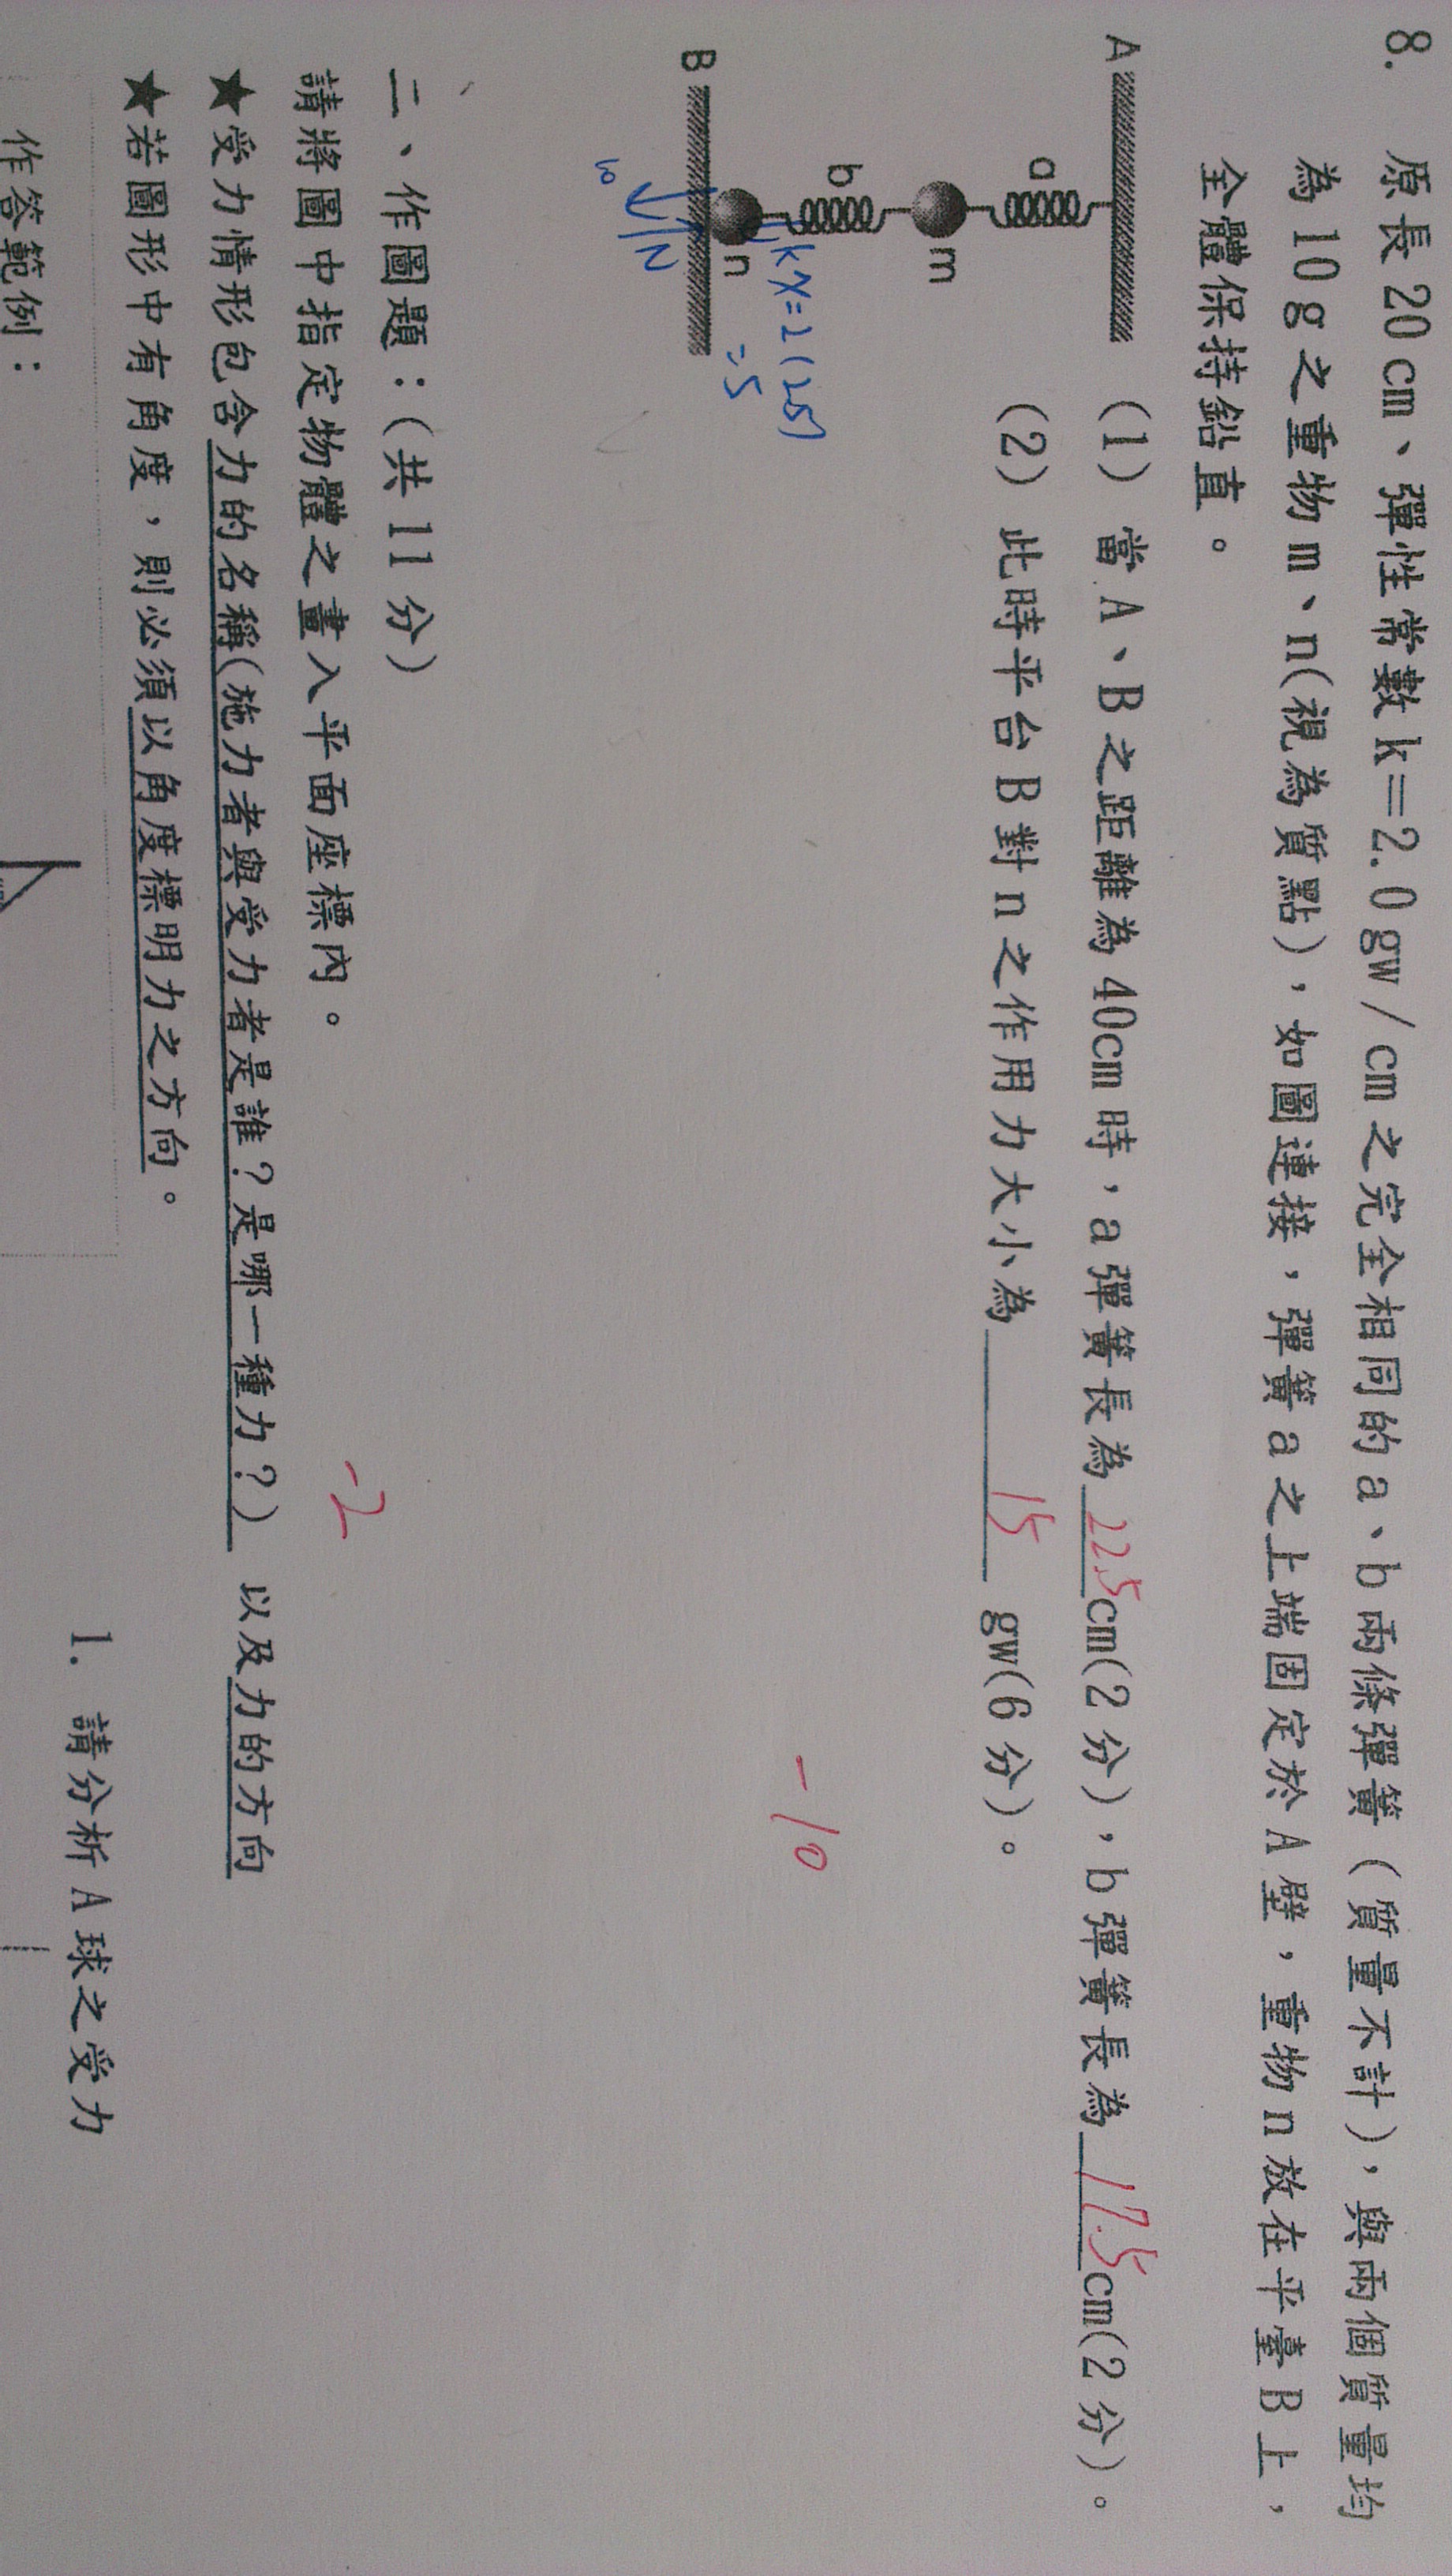 8. 原長 20 cm、彈性常數 k=2.0 gw/cm 之完全相同的 a、b 兩條彈簧(質量不計),與兩個質量均
為 10 g 之重物 m、n(視為質點),如圖連接,彈簧 a 之上端固定於 A 壁,重物 n 放在平臺 B 上,
全體保持鉛直。
(1) 當 A、B 之距離為 40cm 時,a 彈簧長為 22.5 cm(2 分),b 彈簧長為 17.5 cm(2 分)。
(2) 此時平台 B 對 n 之作用力大小為 15 gw(6 分)。
A
a
m
b
n
B
kx=2(2.5)
=5
N
10
-10
二、作圖題:(共 11 分)
請將圖中指定物體之畫入平面座標內。
-2
★受力情形包含力的名稱(施力者與受力者是誰?是哪一種力?) 以及力的方向
★若圖形中有角度,則必須以角度標明力之方向。
1. 請分析 A 球之受力
作答範例: